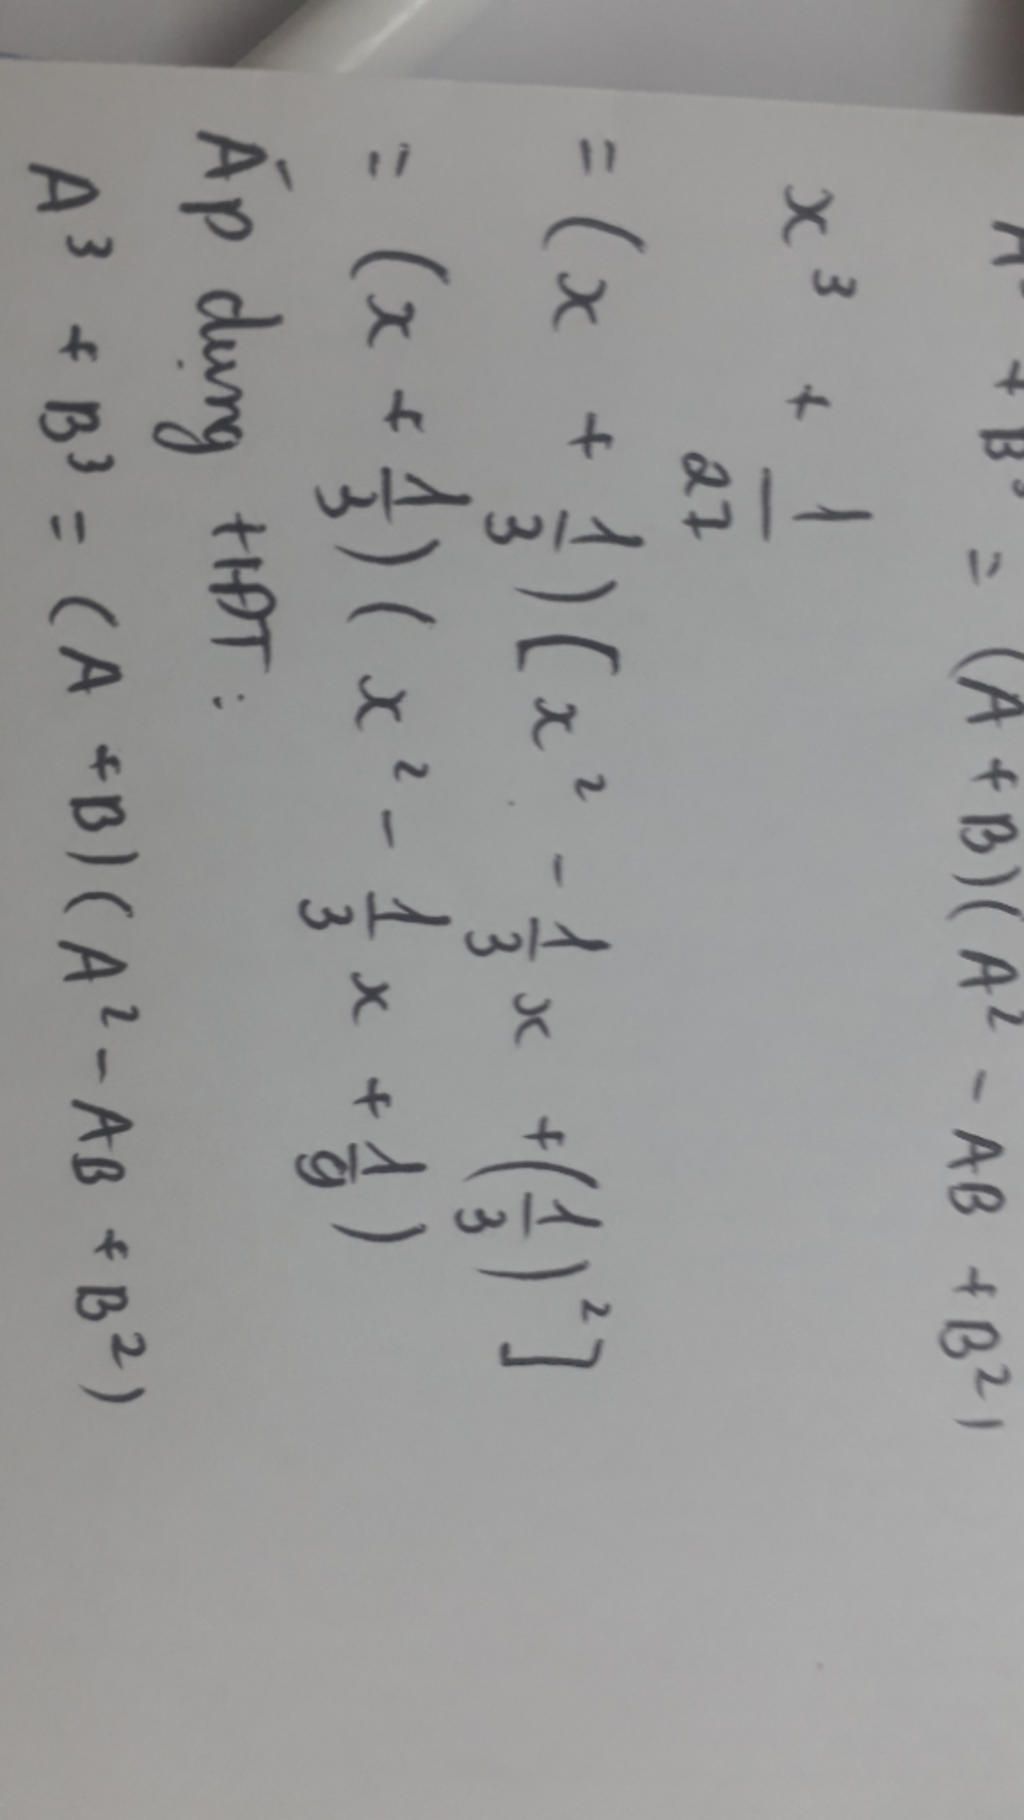 A³ + B³ = (A + B)(A² - AB + B²)
x³ + 1/27
= (x + 1/3)[x² - 1/3 x + (1/3)²]
= (x + 1/3)(x² - 1/3 x + 1/9)
Áp dụng HĐT:
A³ + B³ = (A + B)(A² - AB + B²)